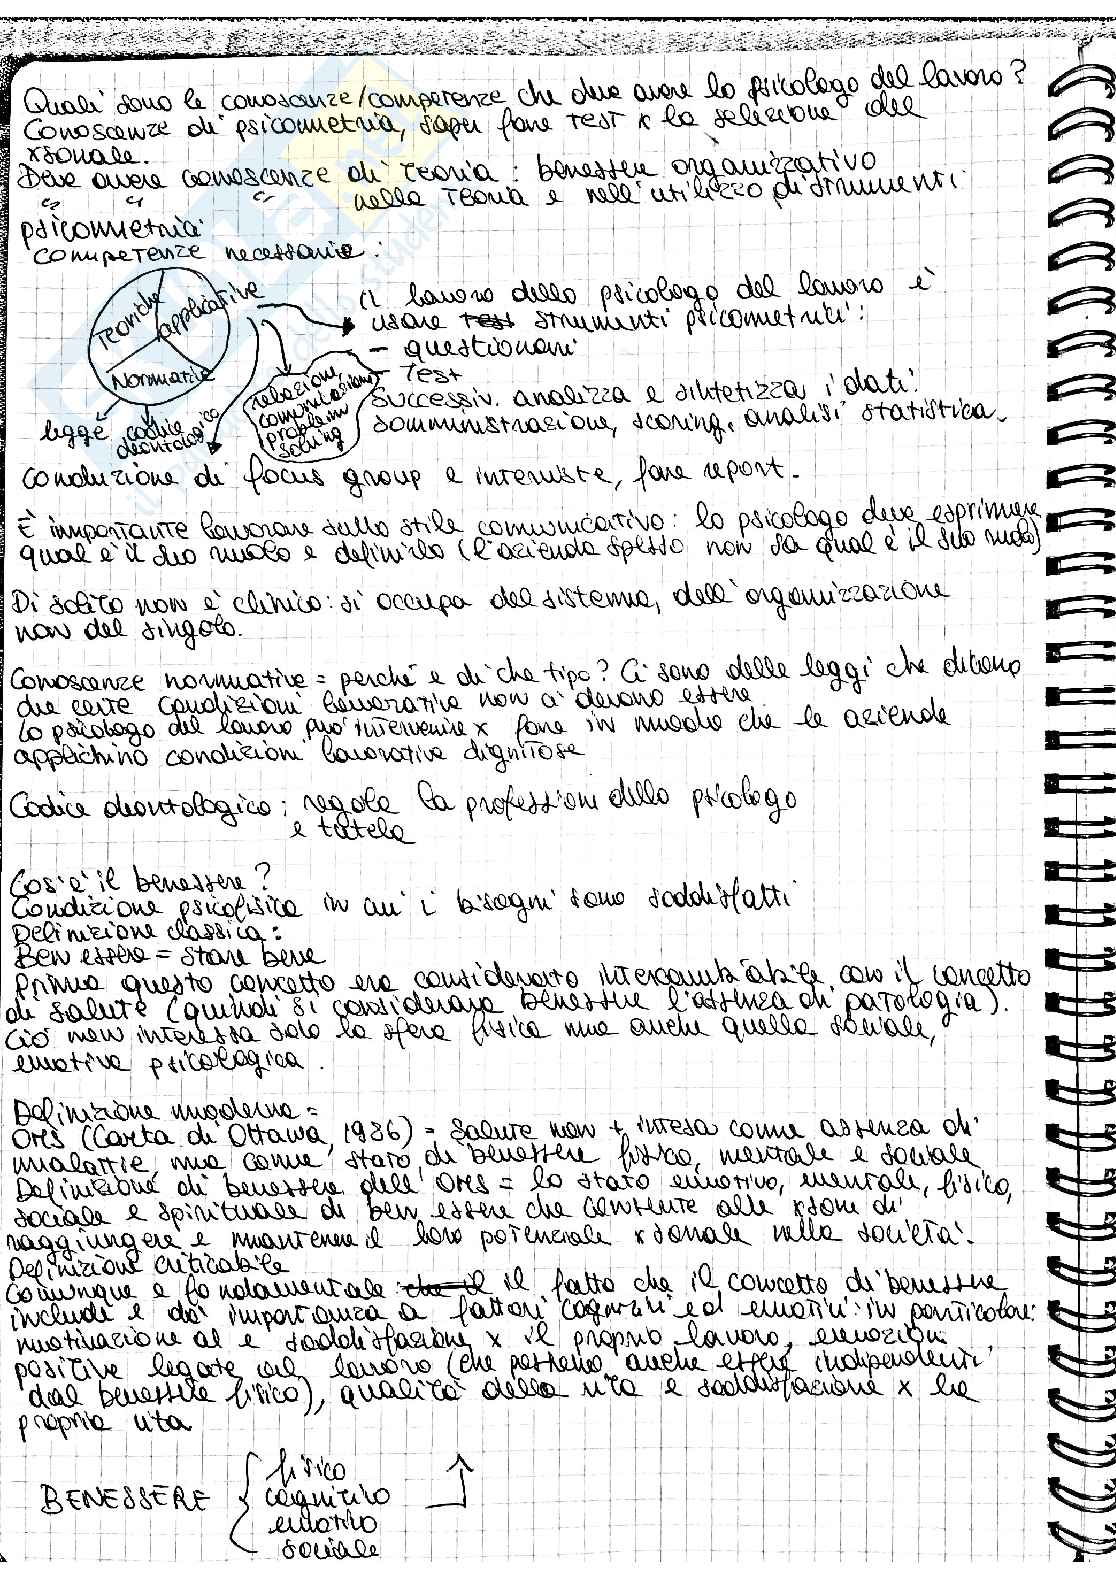 Quali sono le conoscenze/competenze che deve avere lo psicologo del lavoro?
Conoscenze di psicometria, saper fare test x la selezione del
xsonale.
Deve avere conoscenze di teoria: benessere organizzativo
" " " nella teoria e nell'utilizzo di strumenti
psicometrici
competenze necessarie:
teoriche
applicative
normative
legge
codice deontologico
relazioni,
comunicazione
problem
solving
il lavoro dello psicologo del lavoro è
usare test strumenti psicometrici:
- questionari
- test
Successiv. analizza e sintetizza i dati:
somministrazione, scoring, analisi statistica.
conduzione di focus group e interviste, fare report.
È importante lavorare sullo stile comunicativo: lo psicologo deve esprimere
qual è il suo ruolo e definirlo (l'azienda spesso non sa qual è il suo ruolo)
Di solito non è clinico: si occupa del sistema, dell'organizzazione
non del singolo.
Conoscenze normative = perché e di che tipo? Ci sono delle leggi che dicono
che certe condizioni lavorative non ci devono essere
Lo psicologo del lavoro può intervenire x fare in modo che le aziende
applichino condizioni lavorative dignitose
Codice deontologico: regola la professioni dello psicologo
e tutela
Cos'è il benessere?
Condizione psicofisica in cui i bisogni sono soddisfatti
Definizione classica:
Ben essere = stare bene
Prima questo concetto era considerato intercambiabile con il concetto
di salute (quindi si considerava benessere l'assenza di patologia).
Ciò non interessa solo la sfera fisica ma anche quella sociale,
emotiva psicologica.
Definizione moderna =
OMS (Carta di Ottawa, 1986) = salute non + intesa come assenza di
malattie, ma come stato di benessere fisico, mentale e sociale
Definizione di benessere dell'OMS = lo stato emotivo, mentale, fisico,
sociale e spirituale di ben essere che consente alle xsone di
raggiungere e mantenere il loro potenziale xsonale nella società.
Definizione criticabile
Comunque è fondamentale che il il fatto che il concetto di benessere
include e dà importanza a fattori cognitivi ed emotivi: in particolare:
motivazione al e soddisfazione x il proprio lavoro, emozioni
positive legate al lavoro (che possono anche essere indipendenti
dal benessere fisico), qualità della vita e soddisfazione x la
propria vita
BENESSERE
fisico
cognitivo
emotivo
sociale